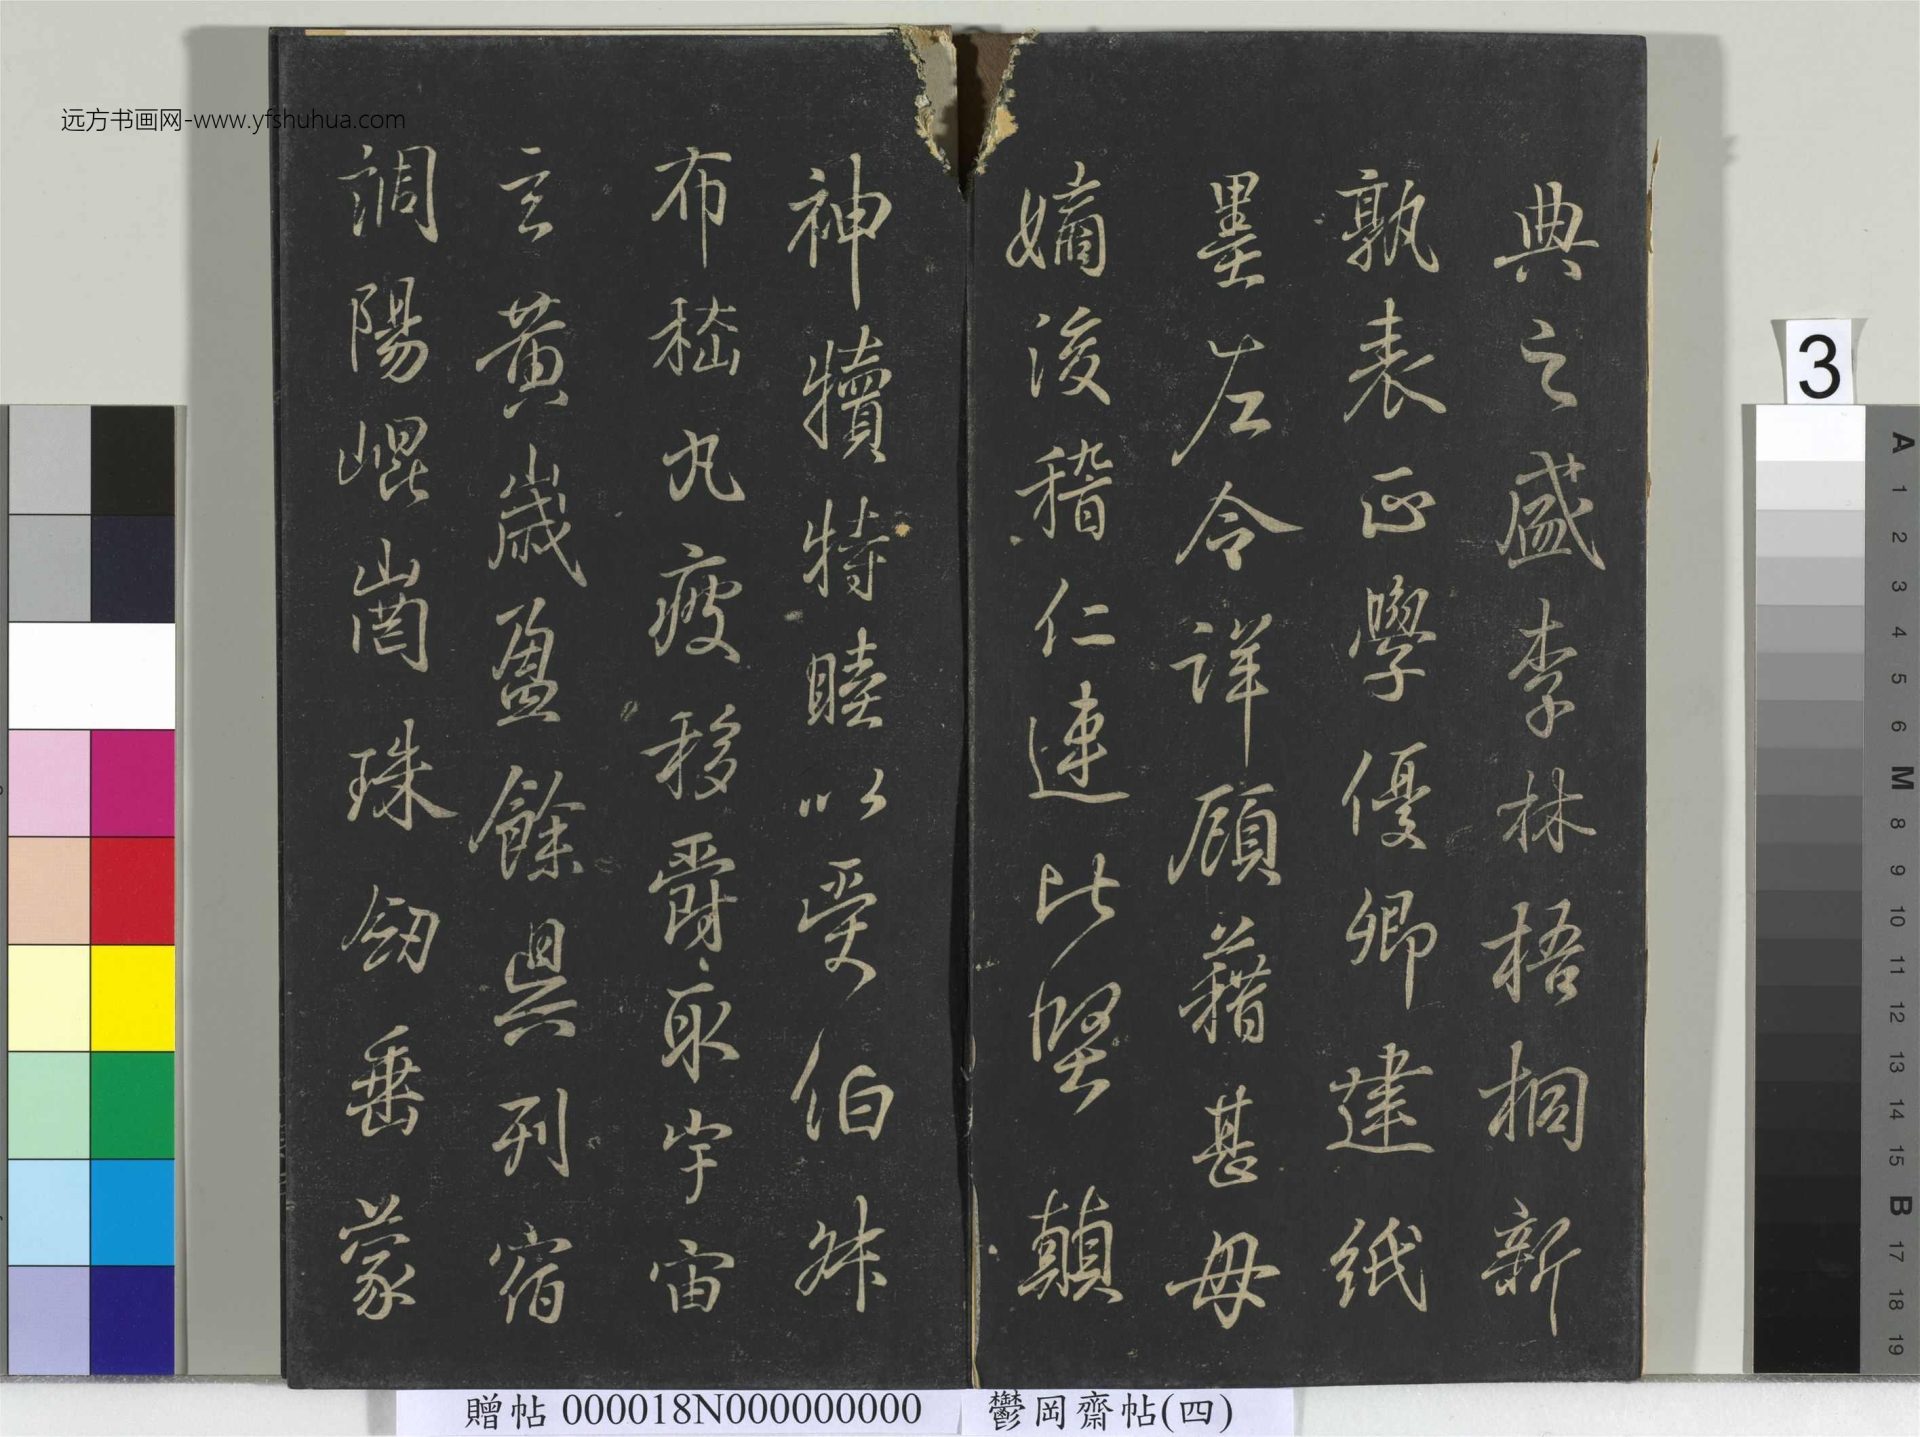 远方书画网-www.yfshuhua.com
典之盛李林梧桐新
孰表正學優卿建紙
墨左令詳顧藉甚毋
嫡後稽仁連比堅顛
神犢特睦以受伯叔
布嵇丸疲移爵取宇宙
玄黃歲盈餘具列宿
調陽崐崗珠釰垂蒙
3
A 1 2 3 4 5 6 M 8 9 10 11 12 13 14 15 B 17 18 19
贈帖 000018N000000000
鬱岡齋帖(四)